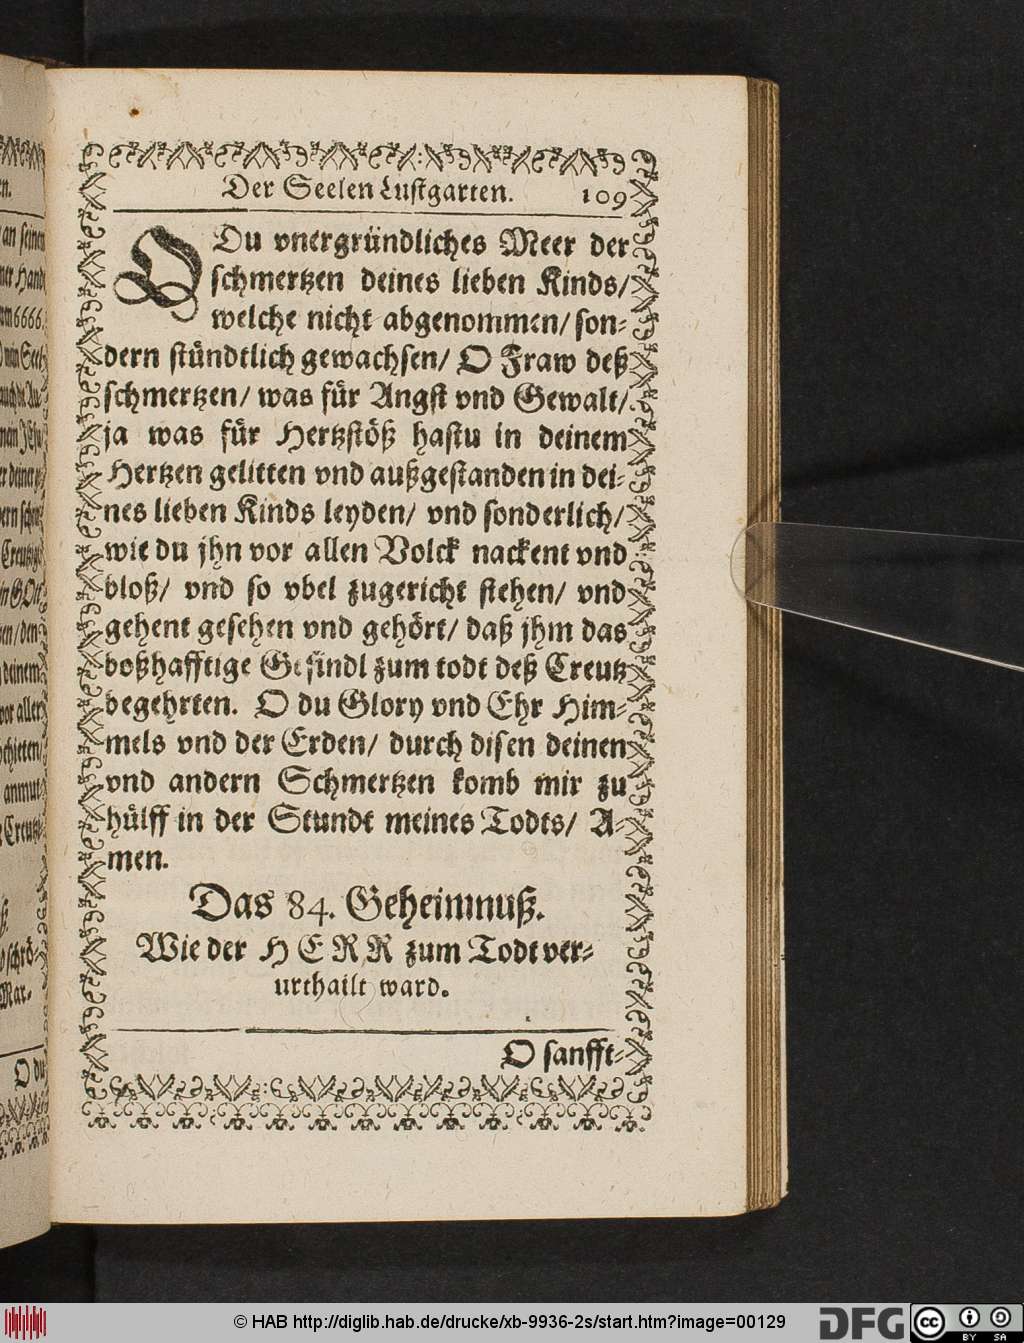 Der Seelen Lustgarten. 109
O Du vnergründliches Meer der
schmertzen deines lieben Kinds/
welche nicht abgenommen/ son-
dern stündtlich gewachsen/ O Fraw deß
schmertzen/ was für Angst vnd Gewalt/
ja was für Hertzstöß hastu in deinem
Hertzen gelitten vnd außgestanden in dei-
nes lieben Kinds leyden/ vnd sonderlich/
wie du jhn vor allen Volck nackent vnd
bloß/ vnd so vbel zugericht stehen/ vnd
gehent gesehen vnd gehört/ daß jhm das
boßhafftige Gesindl zum todt deß Creutz
begehrten. O du Glory vnd Ehr Him-
mels vnd der Erden/ durch disen deinen
vnd andern Schmertzen komb mir zu
hülff in der Stundt meines Todts/ A-
men.
Das 84. Geheimnuß.
Wie der HERR zum Todt ver-
urthailt ward.
O sanfft-
© HAB http://diglib.hab.de/drucke/xb-9936-2s/start.htm?image=00129
DFG
cc
BY SA